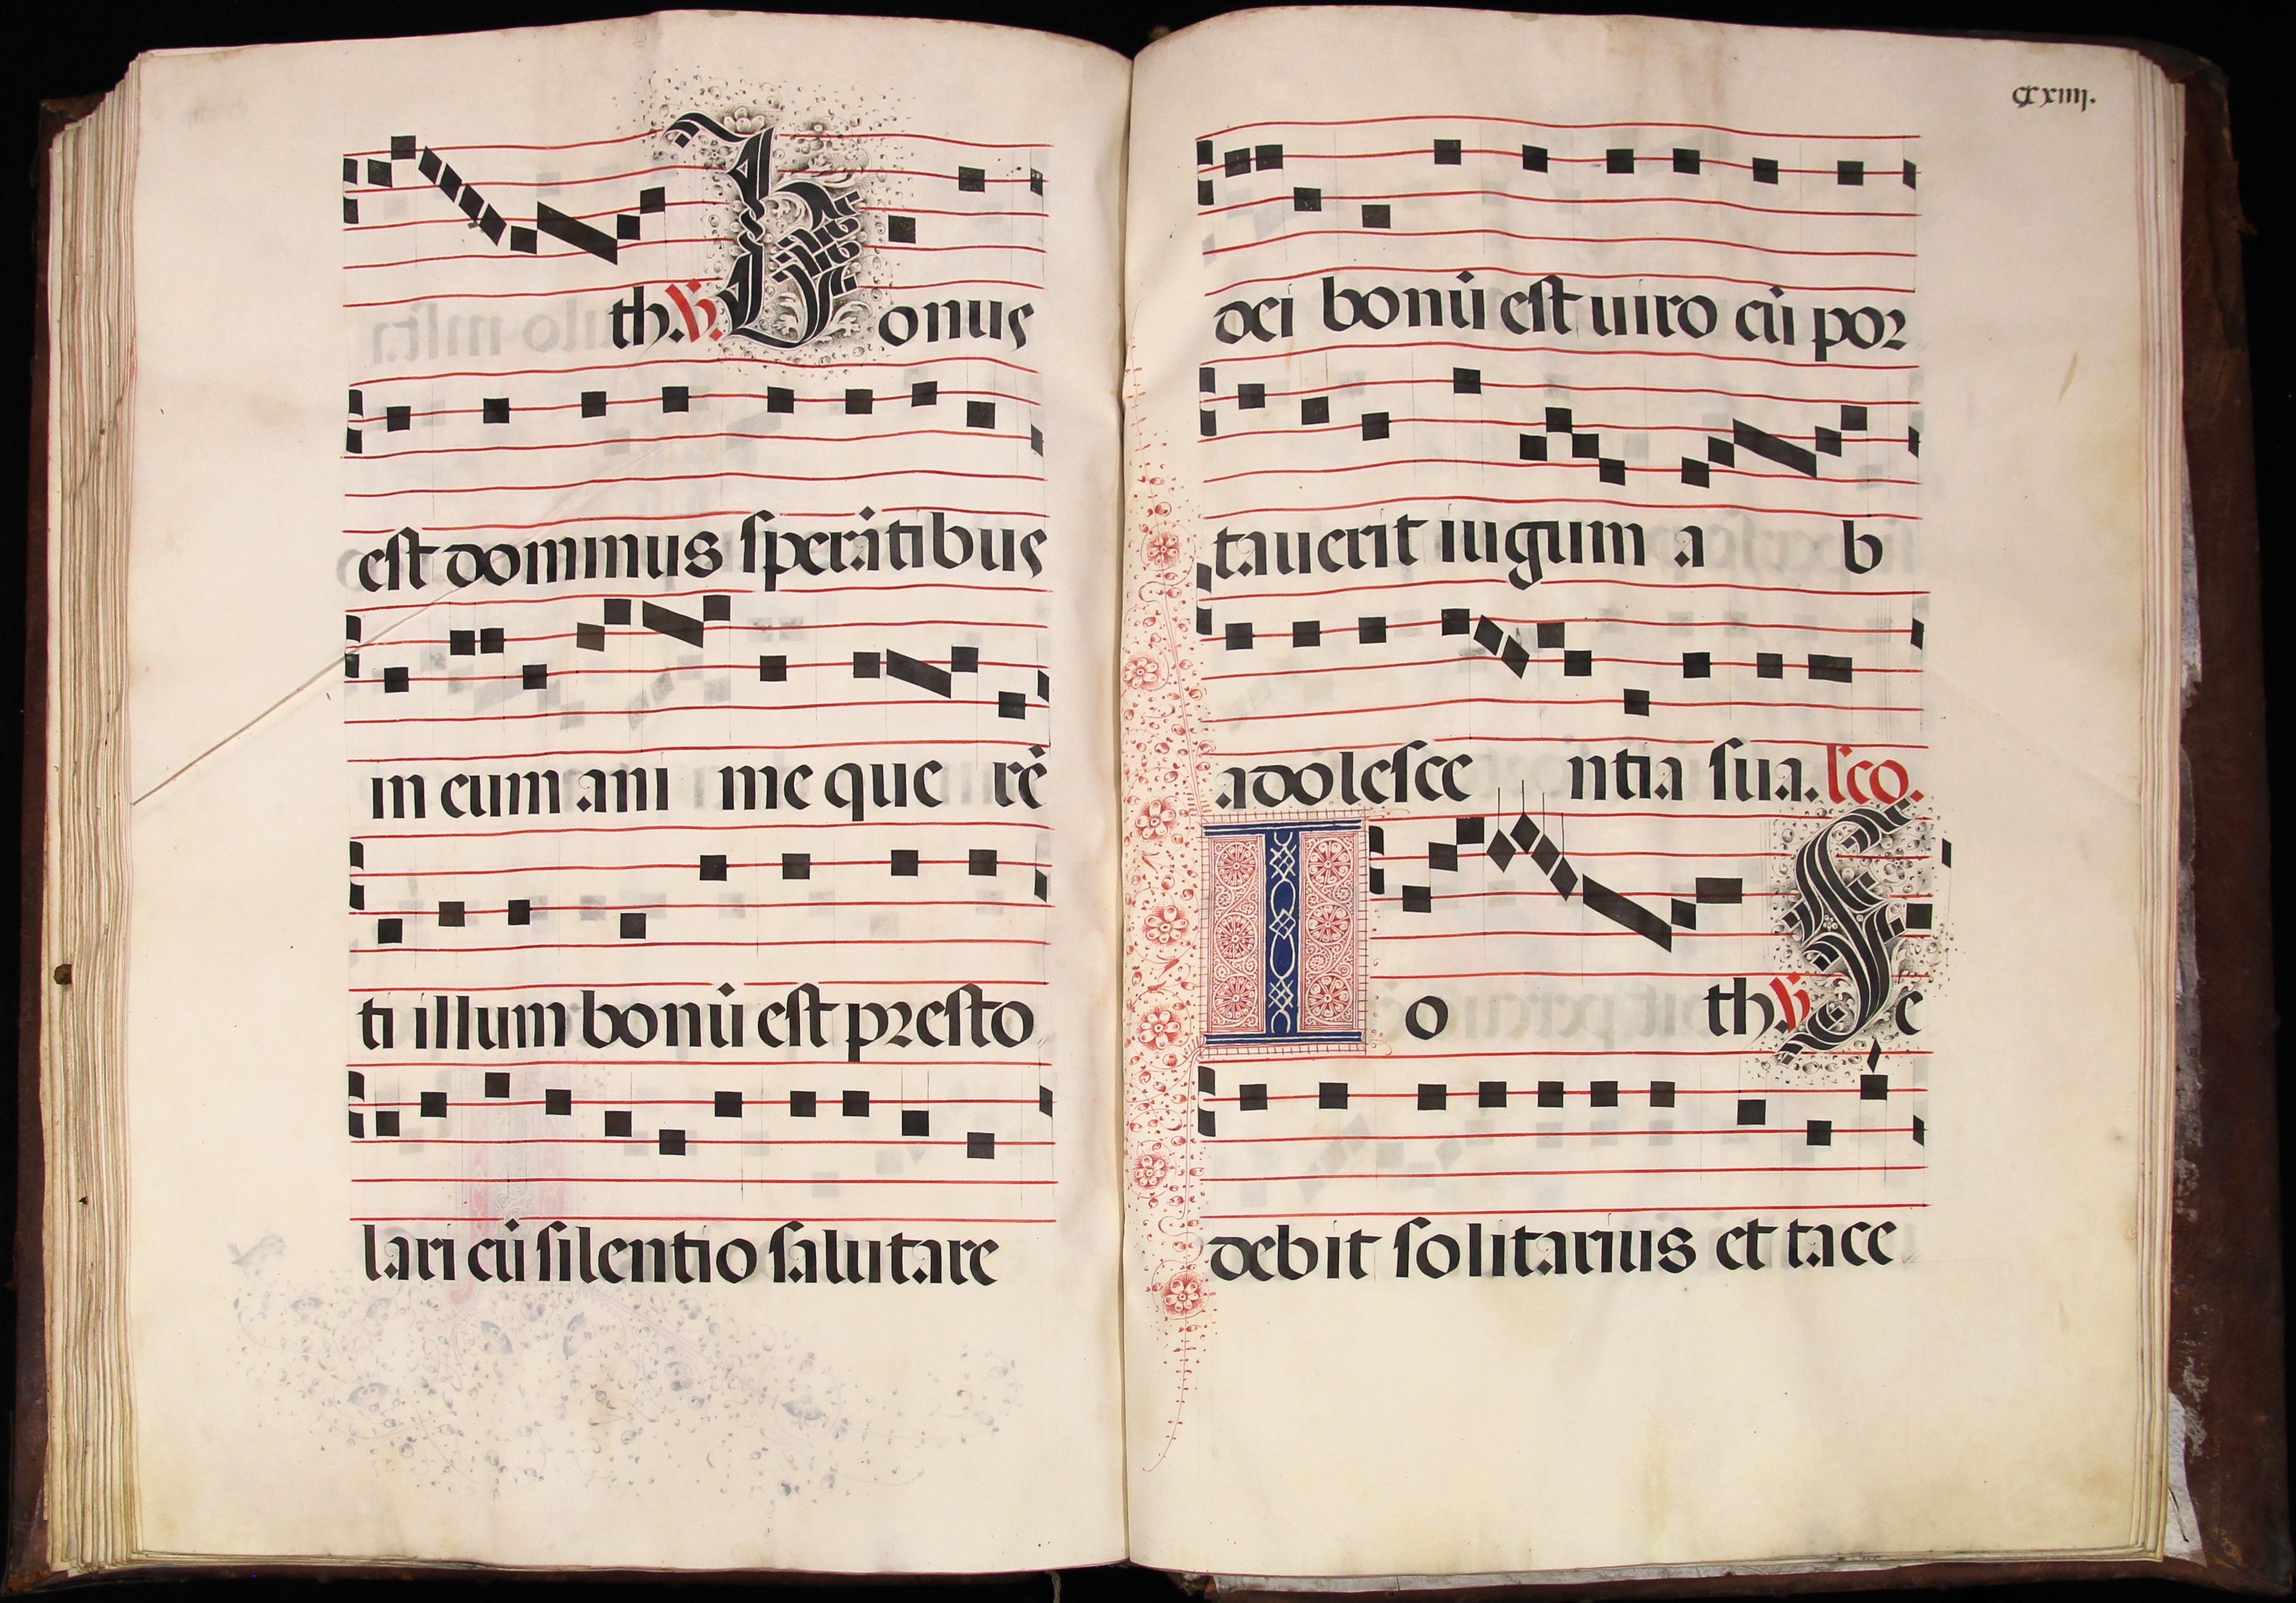 th. ℣. Bonus
est dominus sperãtibus
in eum ani me que rẽ
ti illum bonũ est presto
lari cũ silentio salutare
cxxiiij.
dei bonũ est uiro cũ por
tauerit iugum a b
adolesce ntia sua. lco.
I o th ℣ Se
debit solitarius et tace